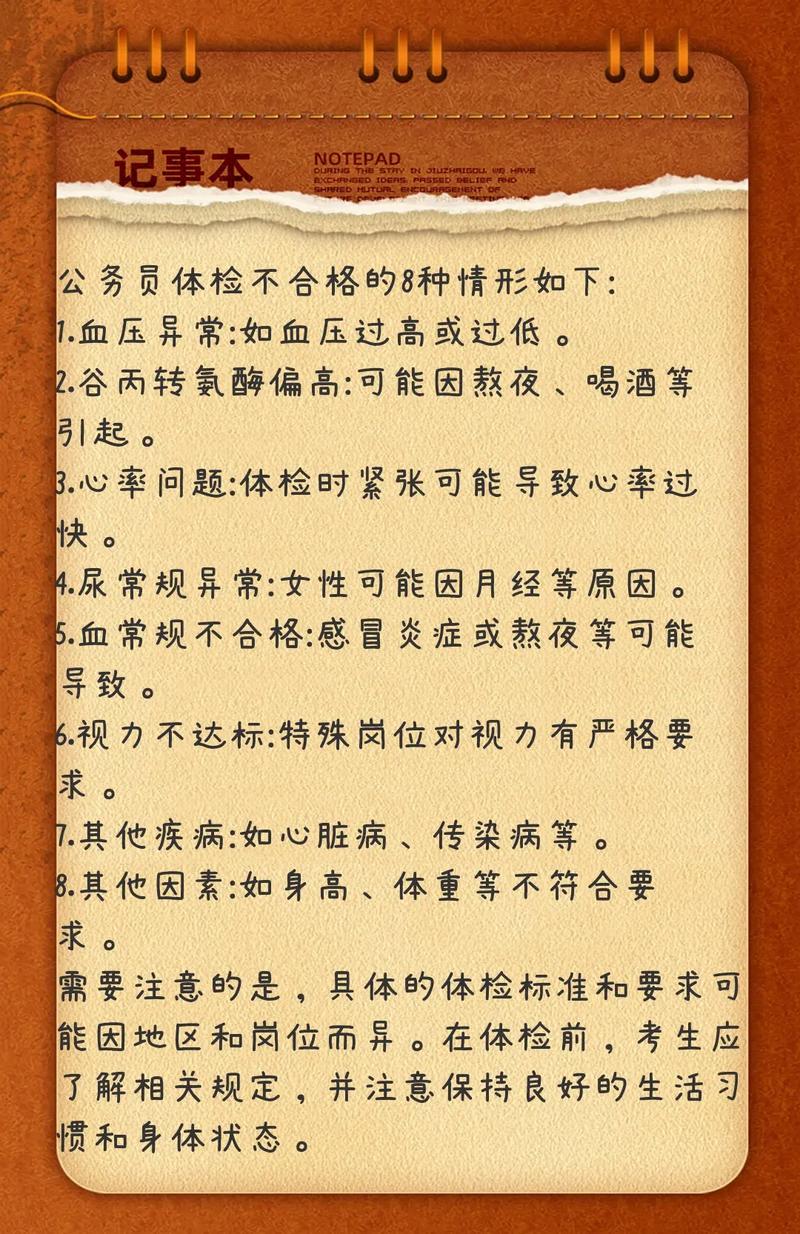 记事本
NOTEPAD
DURING THE STAY IN JIUZHAIGOU, WE HAVE
EXCHANGED IDEAS, PASSED BELIEF AND
SHARED MUTUAL ENCOURAGEMENT OF
公务员体检不合格的8种情形如下:
1.血压异常:如血压过高或过低。
2.谷丙转氨酶偏高:可能因熬夜、喝酒等
引起。
3.心率问题:体检时紧张可能导致心率过
快。
4.尿常规异常:女性可能因月经等原因。
5.血常规不合格:感冒炎症或熬夜等可能
导致。
6.视力不达标:特殊岗位对视力有严格要
求。
7.其他疾病:如心脏病、传染病等。
8.其他因素:如身高、体重等不符合要
求。
需要注意的是，具体的体检标准和要求可
能因地区和岗位而异。在体检前，考生应
了解相关规定，并注意保持良好的生活习
惯和身体状态。